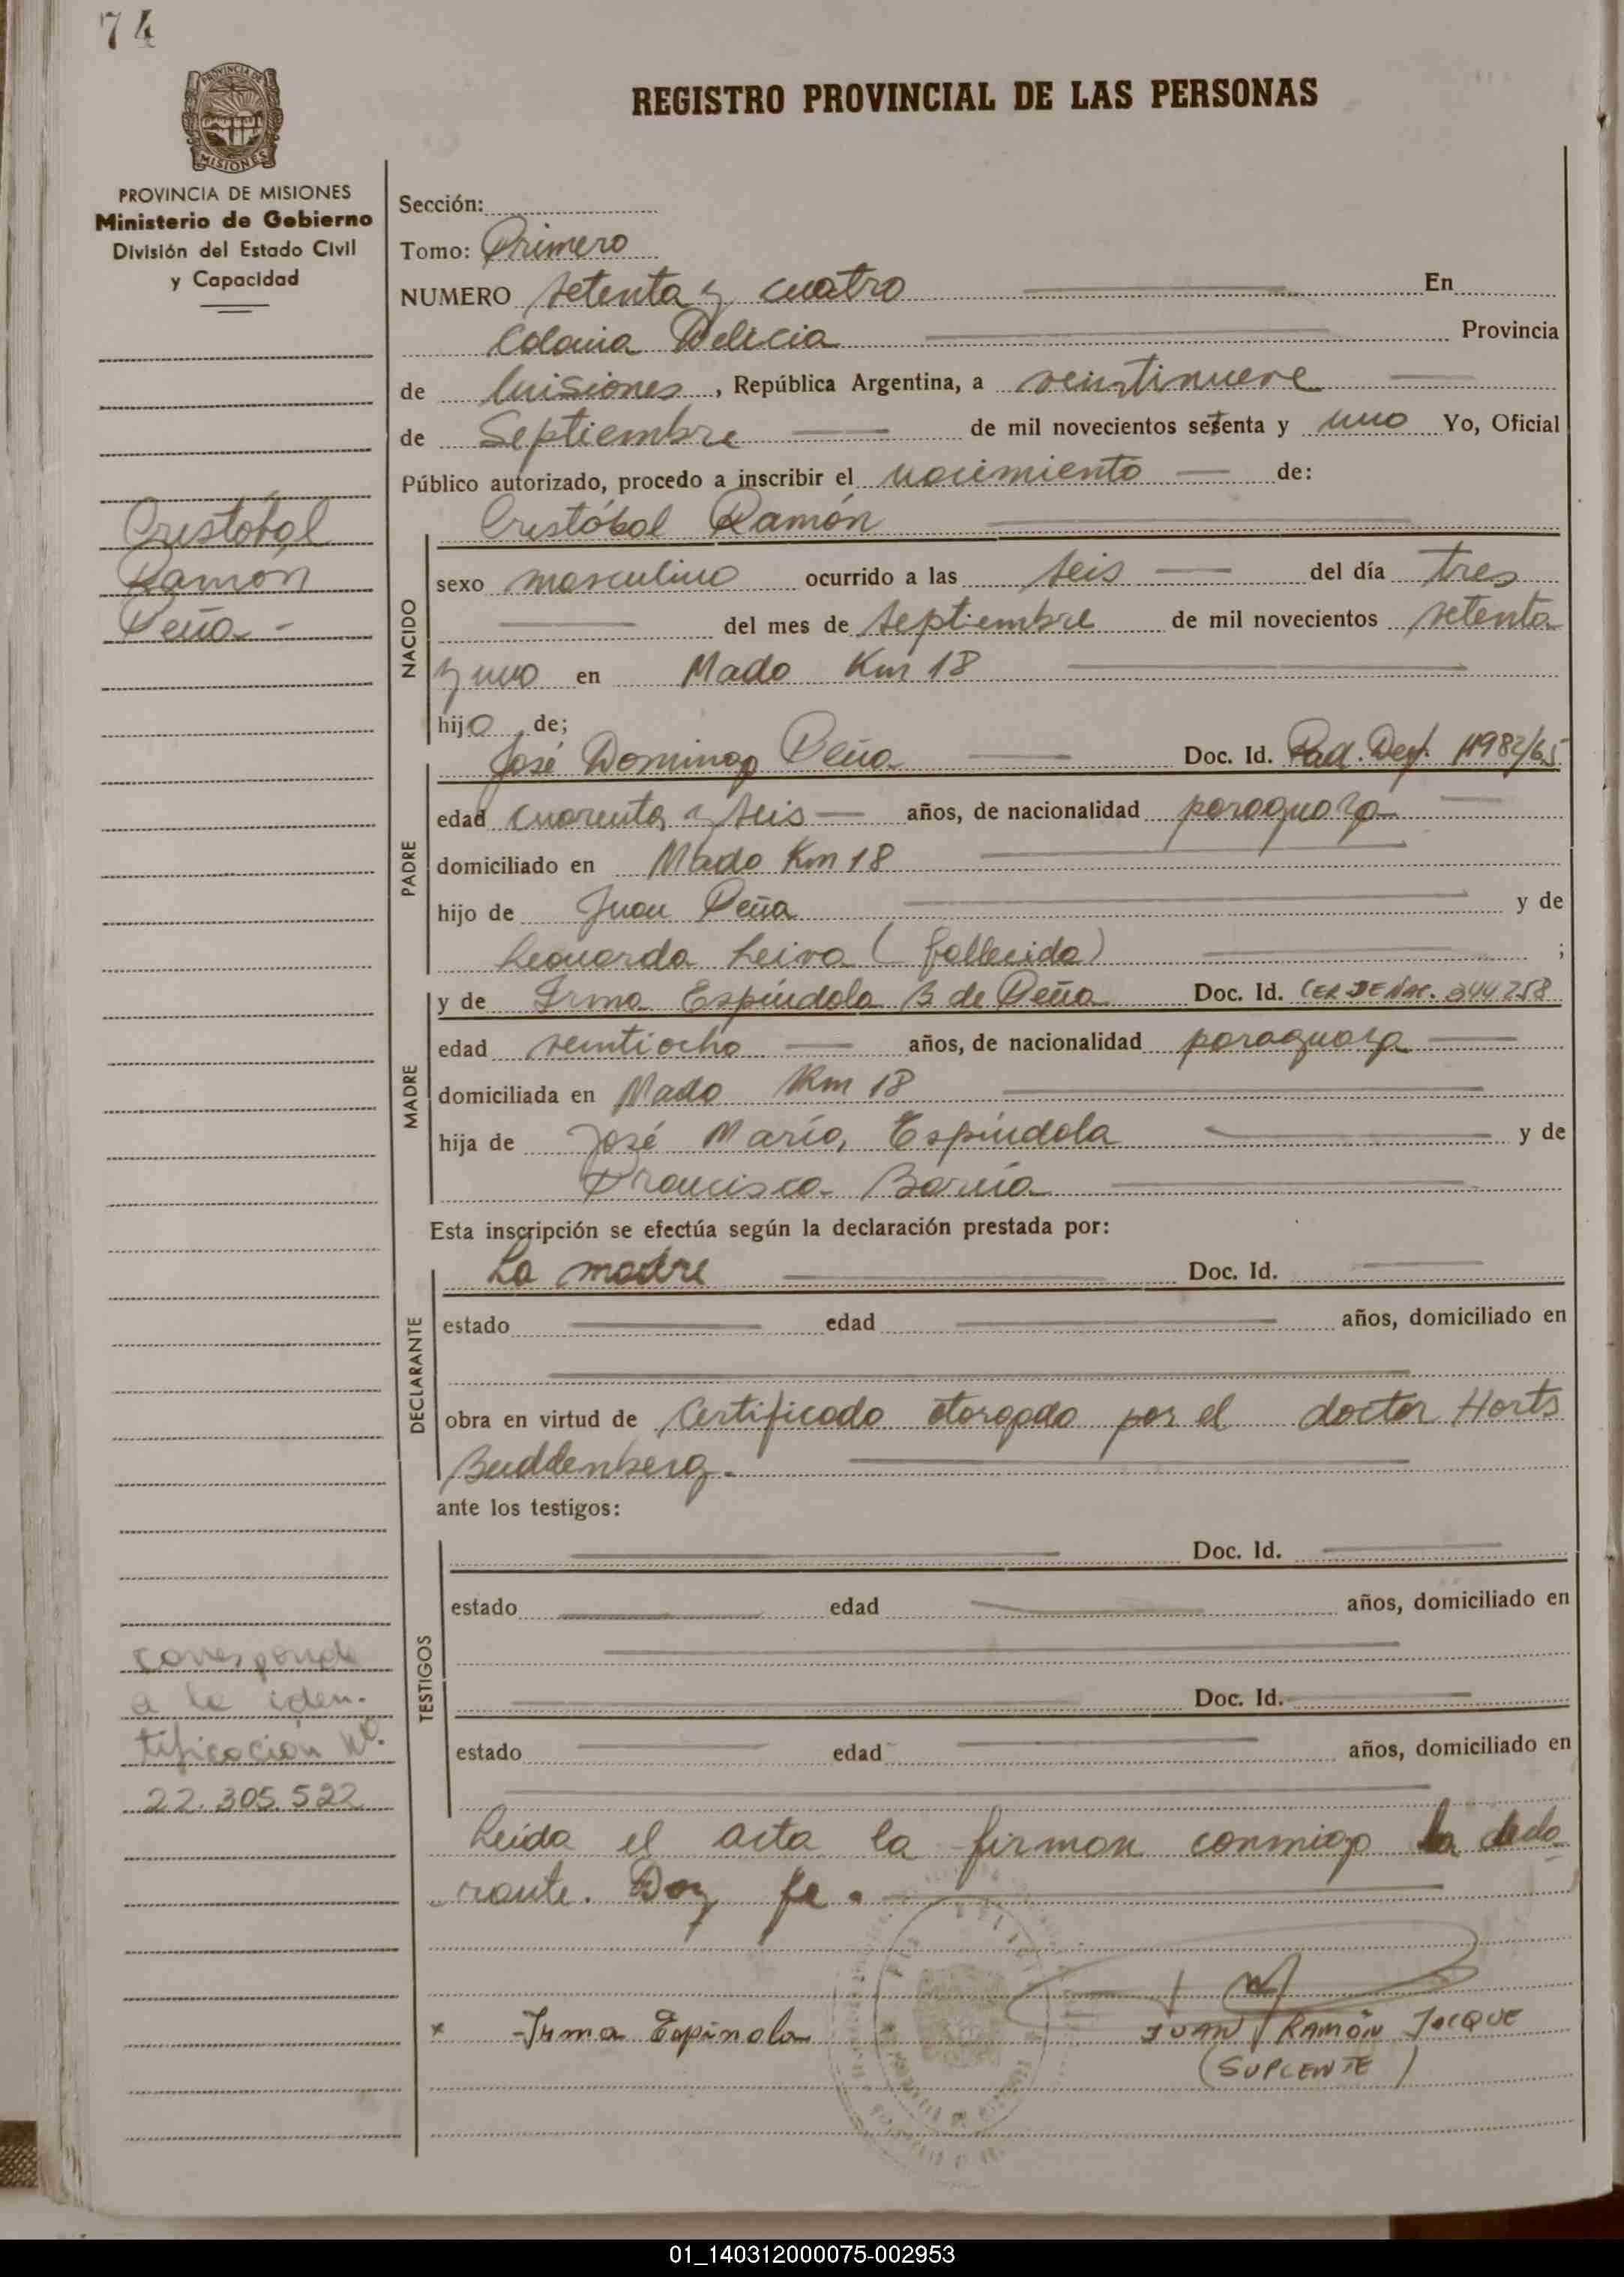 74
PROVINCIA DE MISIONES
REGISTRO PROVINCIAL DE LAS PERSONAS
PROVINCIA DE MISIONES
Ministerio de Gobierno
División del Estado Civil
y Capacidad
Cristobal
Ramón
Peña -
corresponde
a la iden-
tificación Nº.
22.305.522
Sección:
Tomo: Primero
NUMERO setenta y cuatro En
Colonia Delicia Provincia
de Misiones, República Argentina, a veintinueve
de Septiembre de mil novecientos setenta y uno Yo, Oficial
Público autorizado, procedo a inscribir el nacimiento de:
Cristóbal Ramón
NACIDO
sexo masculino ocurrido a las seis del día tres
del mes de septiembre de mil novecientos setenta
y uno en Mado Km 18
hijo de;
PADRE
José Domingo Peña Doc. Id. Rad. Def. 11982/65
edad cuarenta y seis años, de nacionalidad paraguaya
domiciliado en Mado Km 18
hijo de Juan Peña y de
Leonarda Leiva (fallecida) ;
MADRE
y de Irma Espíndola B de Peña Doc. Id. CER DE NAC. 344258
edad veintiocho años, de nacionalidad paraguaya
domiciliada en Mado Km 18
hija de José María Espíndola y de
Francisca
Esta inscripción se efectúa según la declaración prestada por:
DECLARANTE
La madre Doc. Id.
estado edad años, domiciliado en
obra en virtud de Certificado otorgado por el doctor Horts
Buddenberg.
ante los testigos:
TESTIGOS
Doc. Id.
estado edad años, domiciliado en
Doc. Id.
estado edad años, domiciliado en
Leida el acta la firman conmigo la decla
rante. Doy fe.
x Irma Espinola
JUAN RAMÓN JACQUE
(SUPLENTE)
01_140312000075-002953